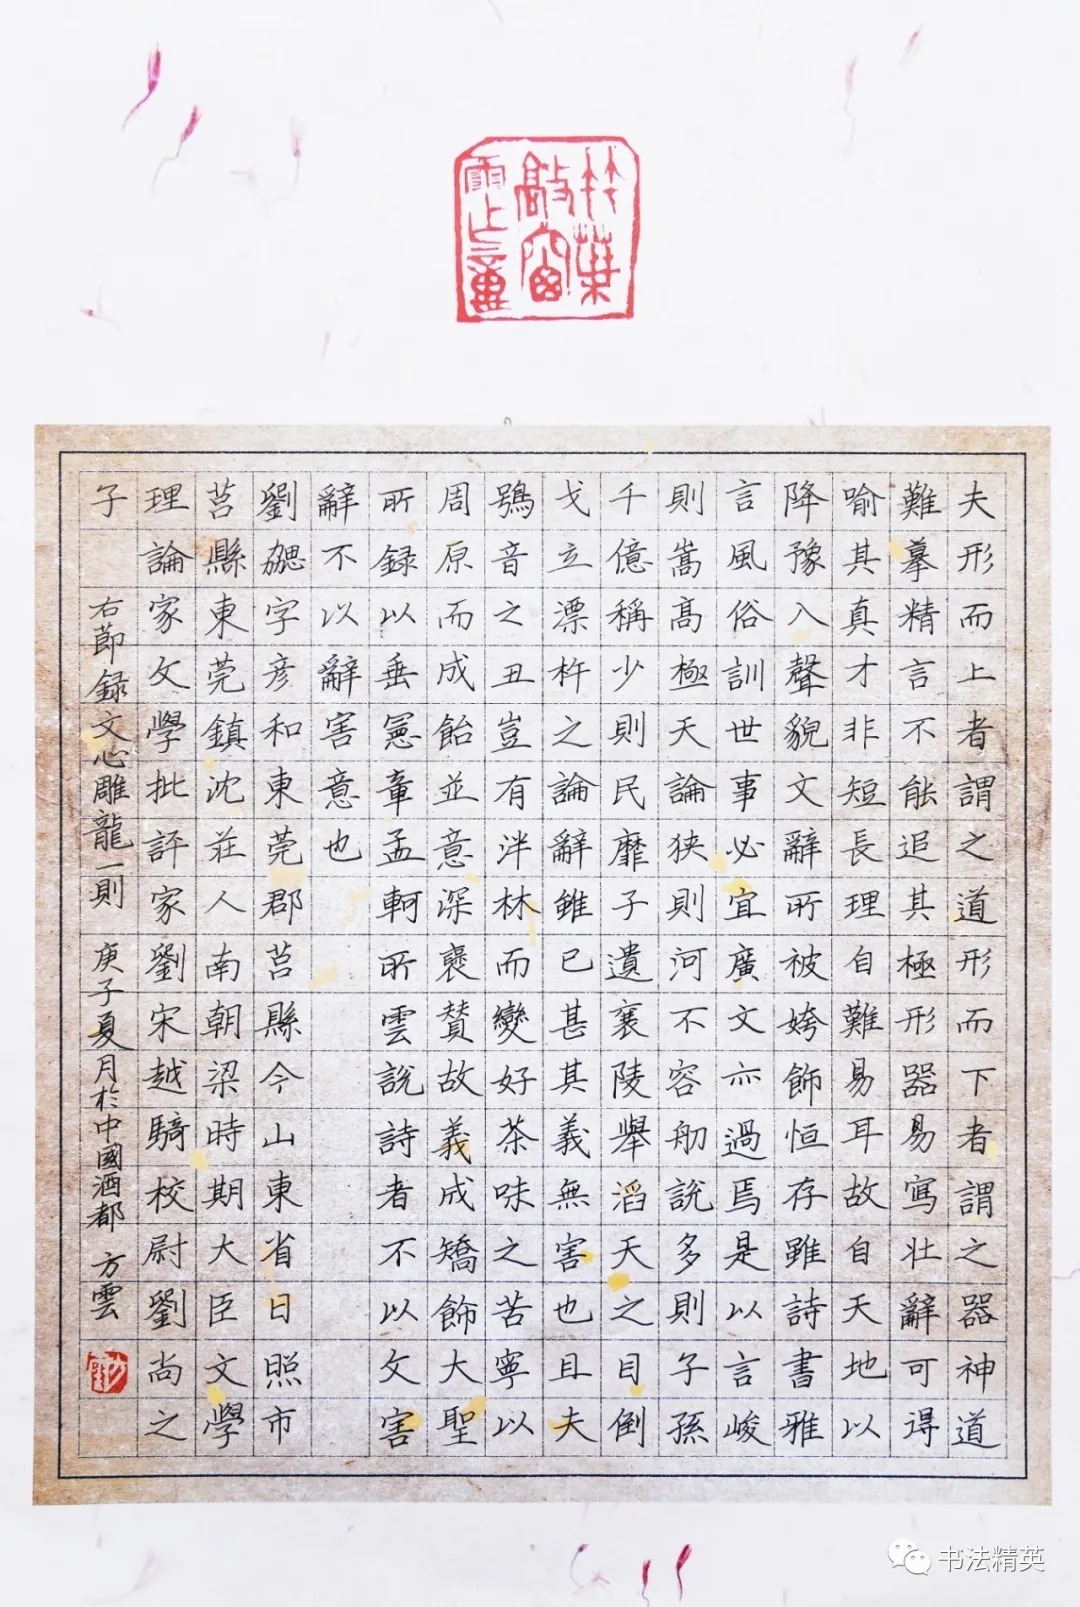 竹葉敲窗
夫形而上者謂之道形而下者謂之器神道
難摹精言不能追其極形器易寫壯辭可得
喻其真才非短長理自難易耳故自天地以
降豫入聲貌文辭所被夸飾恒存雖詩書雅
言風俗訓世事必宜廣文亦過焉是以言峻
則嵩高極天論狹則河不容舠說多則子孫
千億稱少則民靡孑遺襄陵舉滔天之目倒
戈立漂杵之論辭雖已甚其義無害也且夫
鴞音之丑豈有泮林而變好荼味之苦寧以
周原而成飴並意深褒贊故義成矯飾大聖
所録以垂憲章孟軻所雲說詩者不以文害
辭不以辭害意也
劉勰字彥和東莞郡莒縣今山東省日照市
莒縣東莞鎮沈莊人南朝梁時期大臣文學
理論家文學批評家劉宋越騎校尉劉尚之
子
右節録文心雕龍一則 庚子夏月於中國酒都 方雲
书法精英